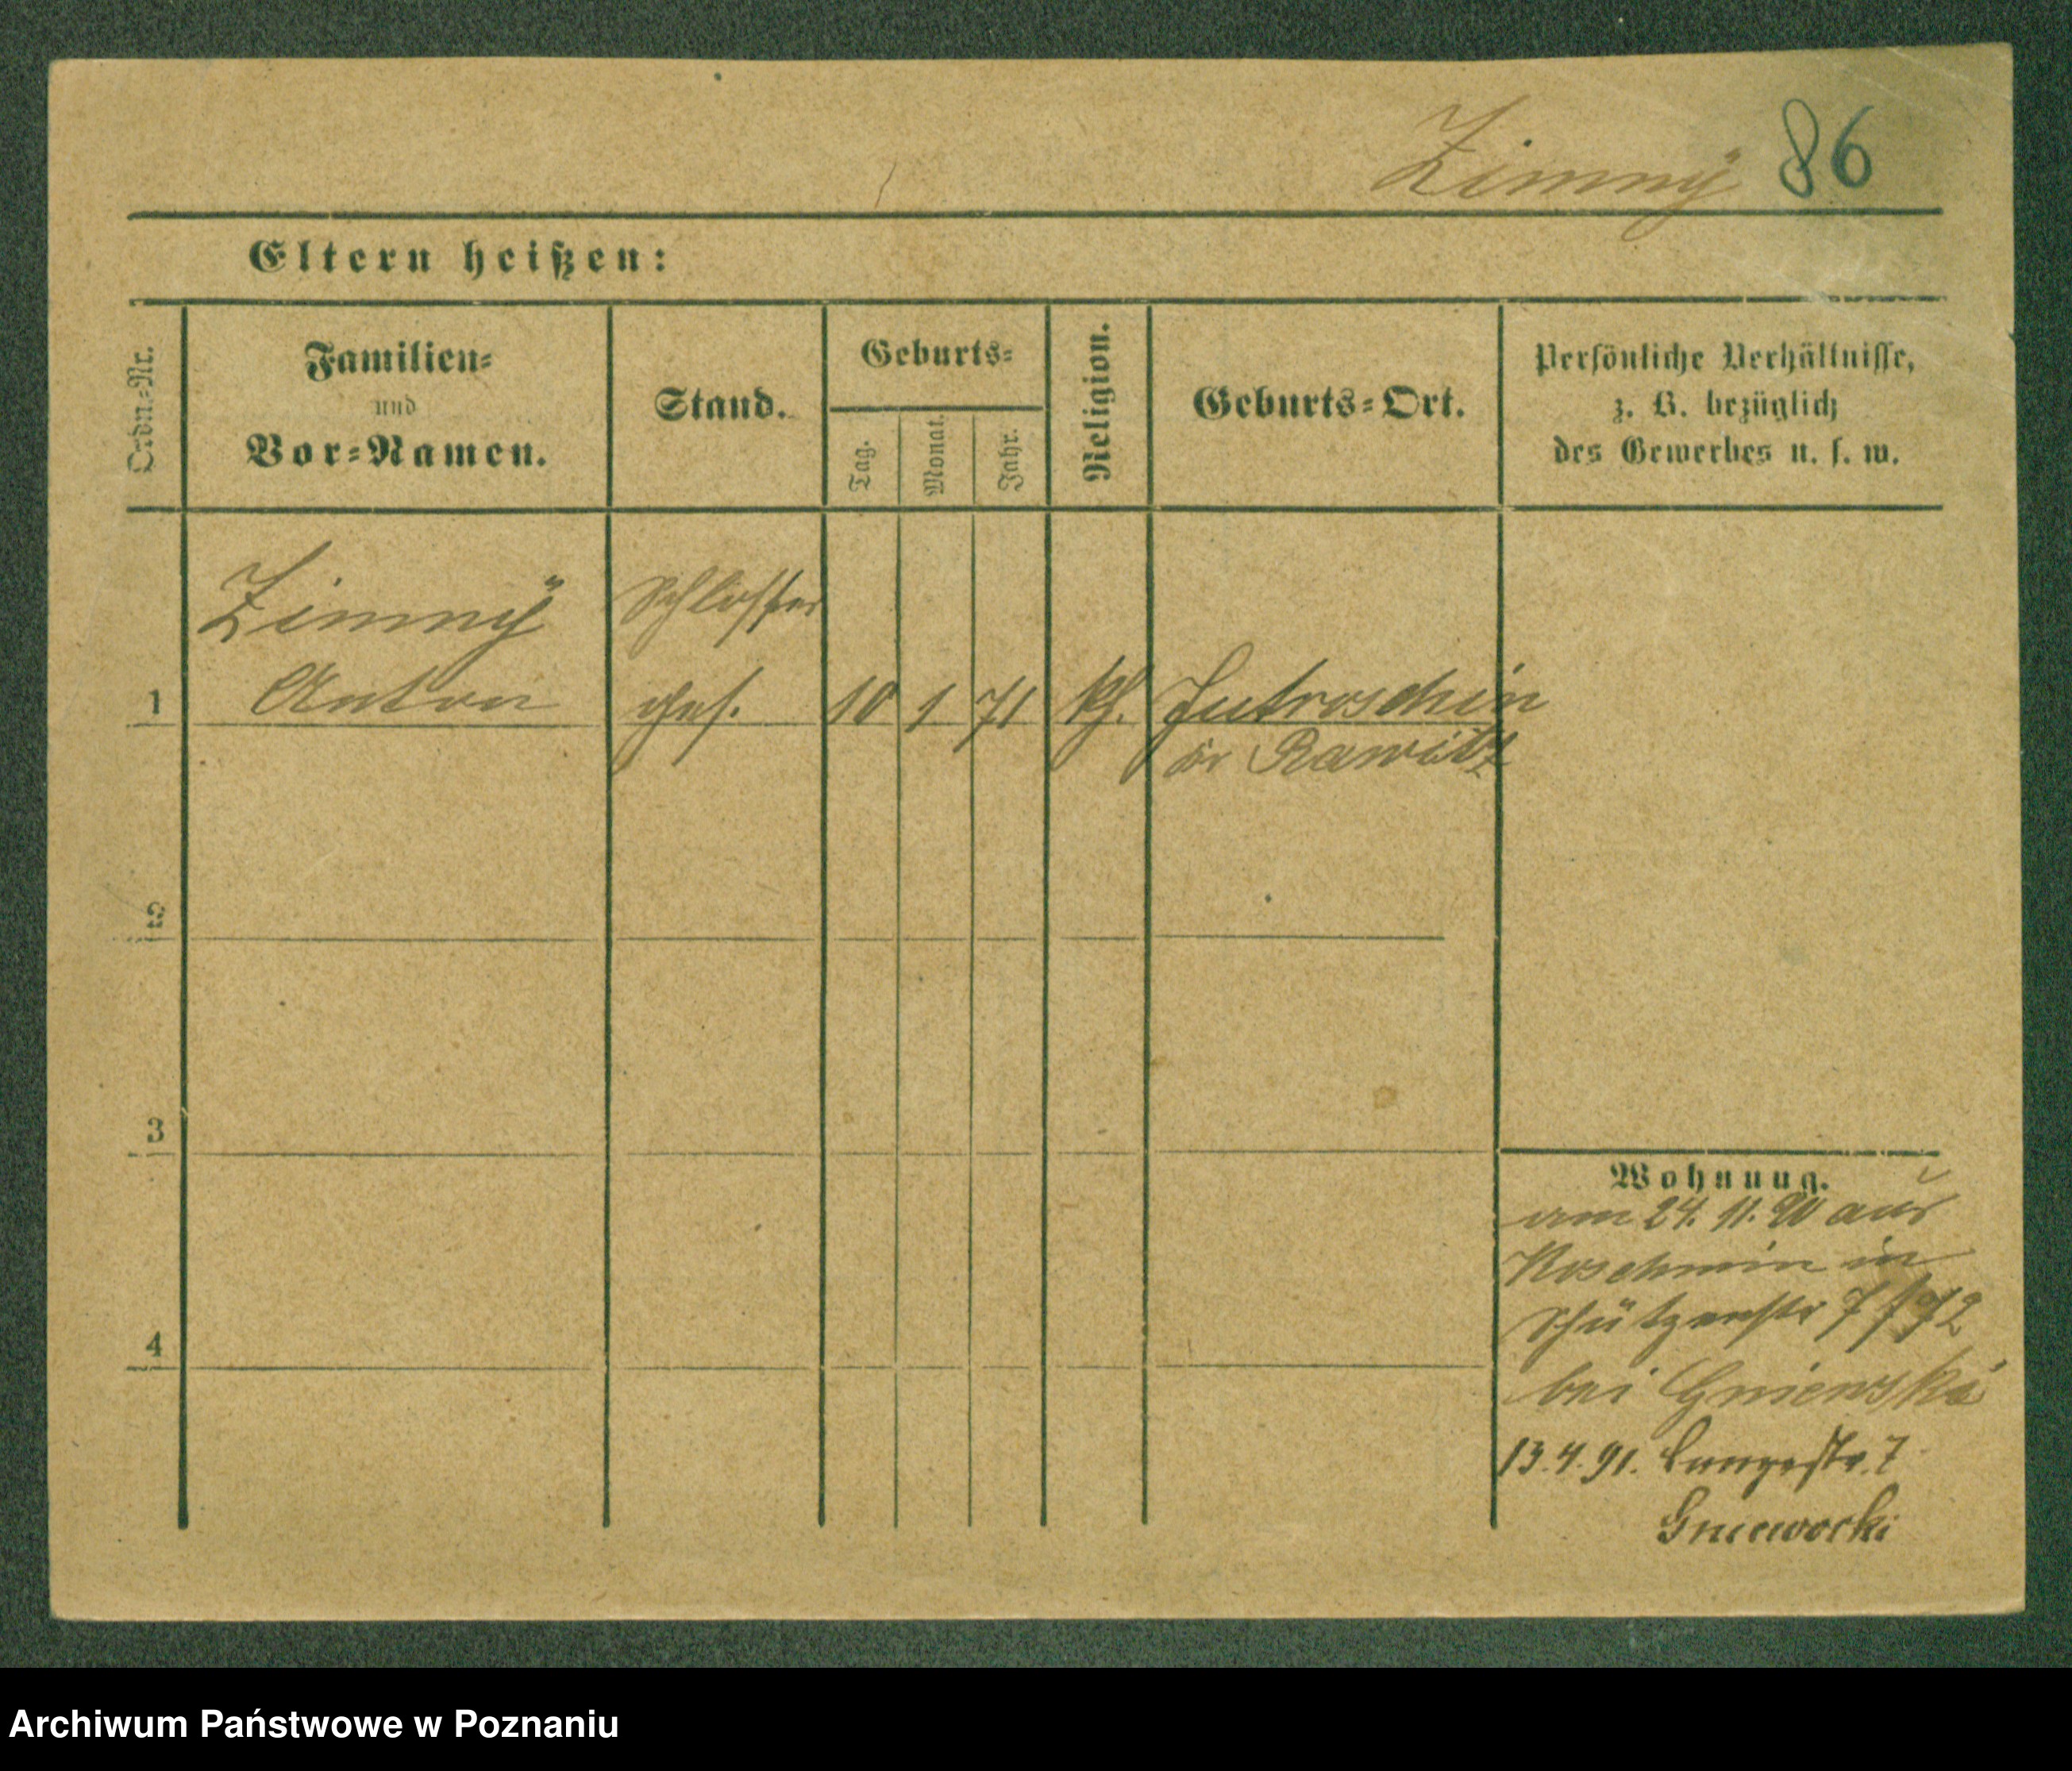 Zimny 86
Eltern heißen:
Ordn.-Nr.
Familien-
und
Vor-Namen.
Stand.
Geburts-
Tag.
Monat.
Jahr.
Religion.
Geburts-Ort.
Persönliche Verhältnisse,
z. B. bezüglich
des Gewerbes u. s. w.
Zimny Schlosser
1 Anton ges. 10 1 71 kh. Jutroschin
Kr Rawitz
2
3
4
Wohnung.
am 24. 11. 90 aus
Koschmin in
Schützenstr 7
bei Gniewski
13. 4. 91. Langestr. 7
Archiwum Państwowe w Poznaniu